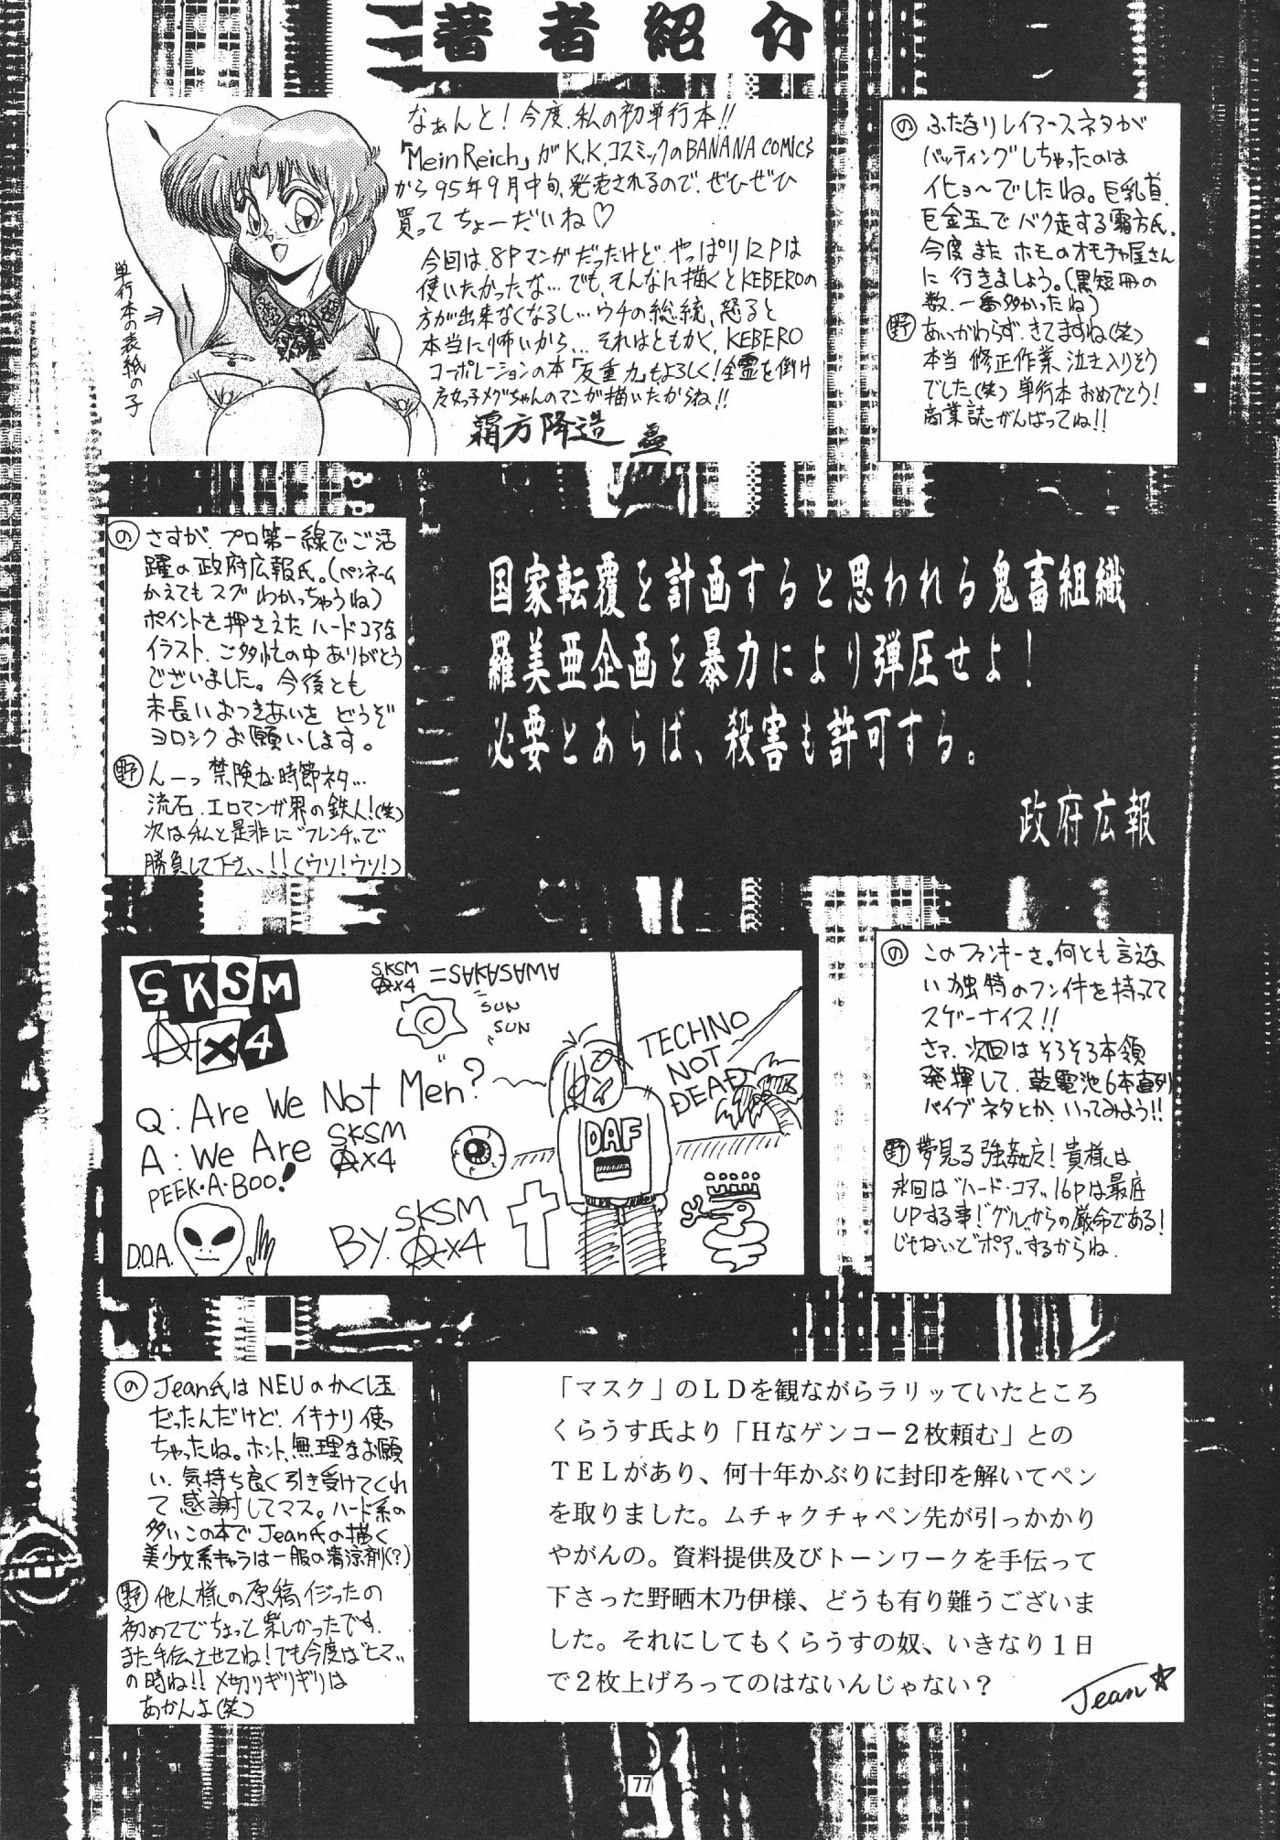 著者紹介
なぁんと！今度、私の初単行本!!
「Mein Reich」がK.K.コスミックのBANANA COMICS
から95年9月中旬、発売されるので、ぜひぜひ
買ってちょーだいね♡
今回は、8Pマンガだったけど、やっぱり12Pは
使いたかったな…でも、そんなに描くとKEBEROの
方が出来なくなるし…ウチの総統、怒ると
本当に怖いから…それはともかく、KEBERO
コーポレーションの本「反重力」もよろしく！全霊を傾け
た女っ子メグちゃんのマンガ描いたからね!!
霜方降造
単行本の表紙の子
の ふたなりレイアースネタが
バッティングしちゃったのは
イヒョ〜でしたね。巨乳首
巨金玉でバク走する霜方氏。
今度またホモのオモチャ屋さん
に行きましょう。(黒短冊の
数、一番多かったね)
野 あいかわらず、きてますね(笑)
本当 修正作業、泣き入りそう
でした(笑) 単行本おめでとう！
商業誌がんばってね!!
の さすが、プロ第一線でご活
躍の政府広報氏。(ペンネーム
かえてもスグわかっちゃうね)
ポイントを押さえたハードコアな
イラスト、ご多忙の中ありがとう
ございました。今後とも
末長いおつきあいを どうぞ
ヨロシクお願いします。
野 んーっ禁険な時節ネタ…
流石、エロマンガ界の鉄人！(笑)
次は私と是非に“フレンチ”で
勝負して下さい!!(ウソ！ウソ！)
国家転覆を計画すると思われる鬼畜組織
羅美亜企画を暴力により弾圧せよ！
必要とあらば、殺害も許可する。
政府広報
SKSM
Ax4
SKSM
Ax4
=SAKASAMA
SUN
SUN
Q: Are We Not Men?
A: We Are SKSM Ax4
PEEK·A·BOO!
D.O.A.
BY. SKSM Ax4
TECHNO
NOT
DEAD
DAF
の このファンキーさ。何とも言えな
い独特のフン件を持ってて
スゲーナイス!!
さァ、次回はそろそろ本領
発揮して、乾電池6本直列
バイブネタとか、いってみよう!!
野 夢見る強姦友！貴様は
次回は“ハード・コア”16Pは最底
UPする事！“グル”からの厳命である！
じゃないと“ポア”するからね
の Jean氏はNEUのかくし玉
だったんだけど、イキナリ使っ
ちゃったね。ホント、無理なお願
い、気持ち良く引き受けてくれ
て感謝してマス。ハード系の
多いこの本でJean氏の描く
美少女系キャラは一服の清涼剤(？)
野 他人様の原稿イジったの
初めてでちょっと楽しかったです
また手伝させてね！でも今度は“ヒマ”
の時ね!! 〆切りギリギリは
あかんよ(笑)
「マスク」のＬＤを観ながらラリッていたところ
くらうす氏より「Ｈなゲンコー２枚頼む」との
ＴＥＬがあり、何十年かぶりに封印を解いてペン
を取りました。ムチャクチャペン先が引っかかり
やがんの。資料提供及びトーンワークを手伝って
下さった野晒木乃伊様、どうも有り難うございま
した。それにしてもくらうすの奴、いきなり１日
で２枚上げろってのはないんじゃない？
Jean☆
77